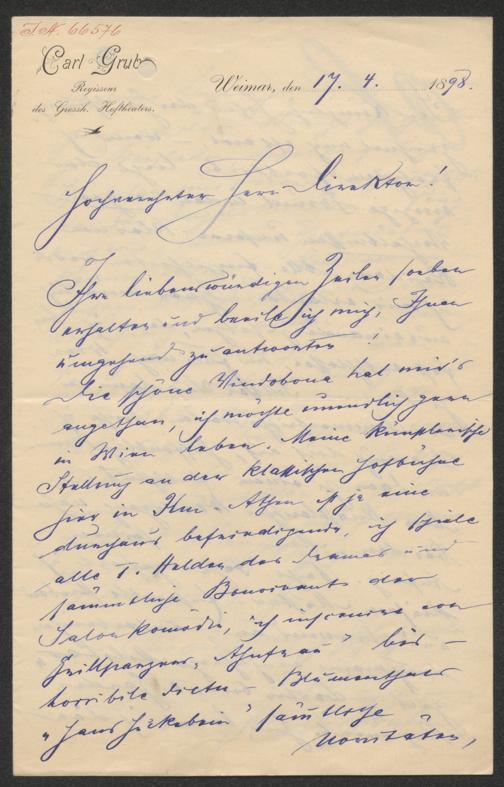 I.N. 66576
Carl Grub
Regisseur
des Grossh. Hoftheaters.
Weimar, den 17. 4. 1898.
Hochverehrter Herr Direktor!
Ihre liebenswürdigen Zeilen soeben
erhalten und beeile ich mich, Ihnen
umgehend zu antworten!
Die schöne Vindobona hat mir's
angethan, ich möchte unendlich gern
in Wien leben. Meine künstlerische
Stellung an der klassischen Hofbühne
hier in Ilm-Athen ist ja eine
durchaus befriedigende, ich spiele
alle I. Helden des Dramas und
sämmtliche Bonvivants der
Salonkomödie, ich inscenire von
Grillparzers „Ahnfrau" bis –
horribile dictu – Blumenthals
„Hans Huckebein" sämtliche
Novitäten,